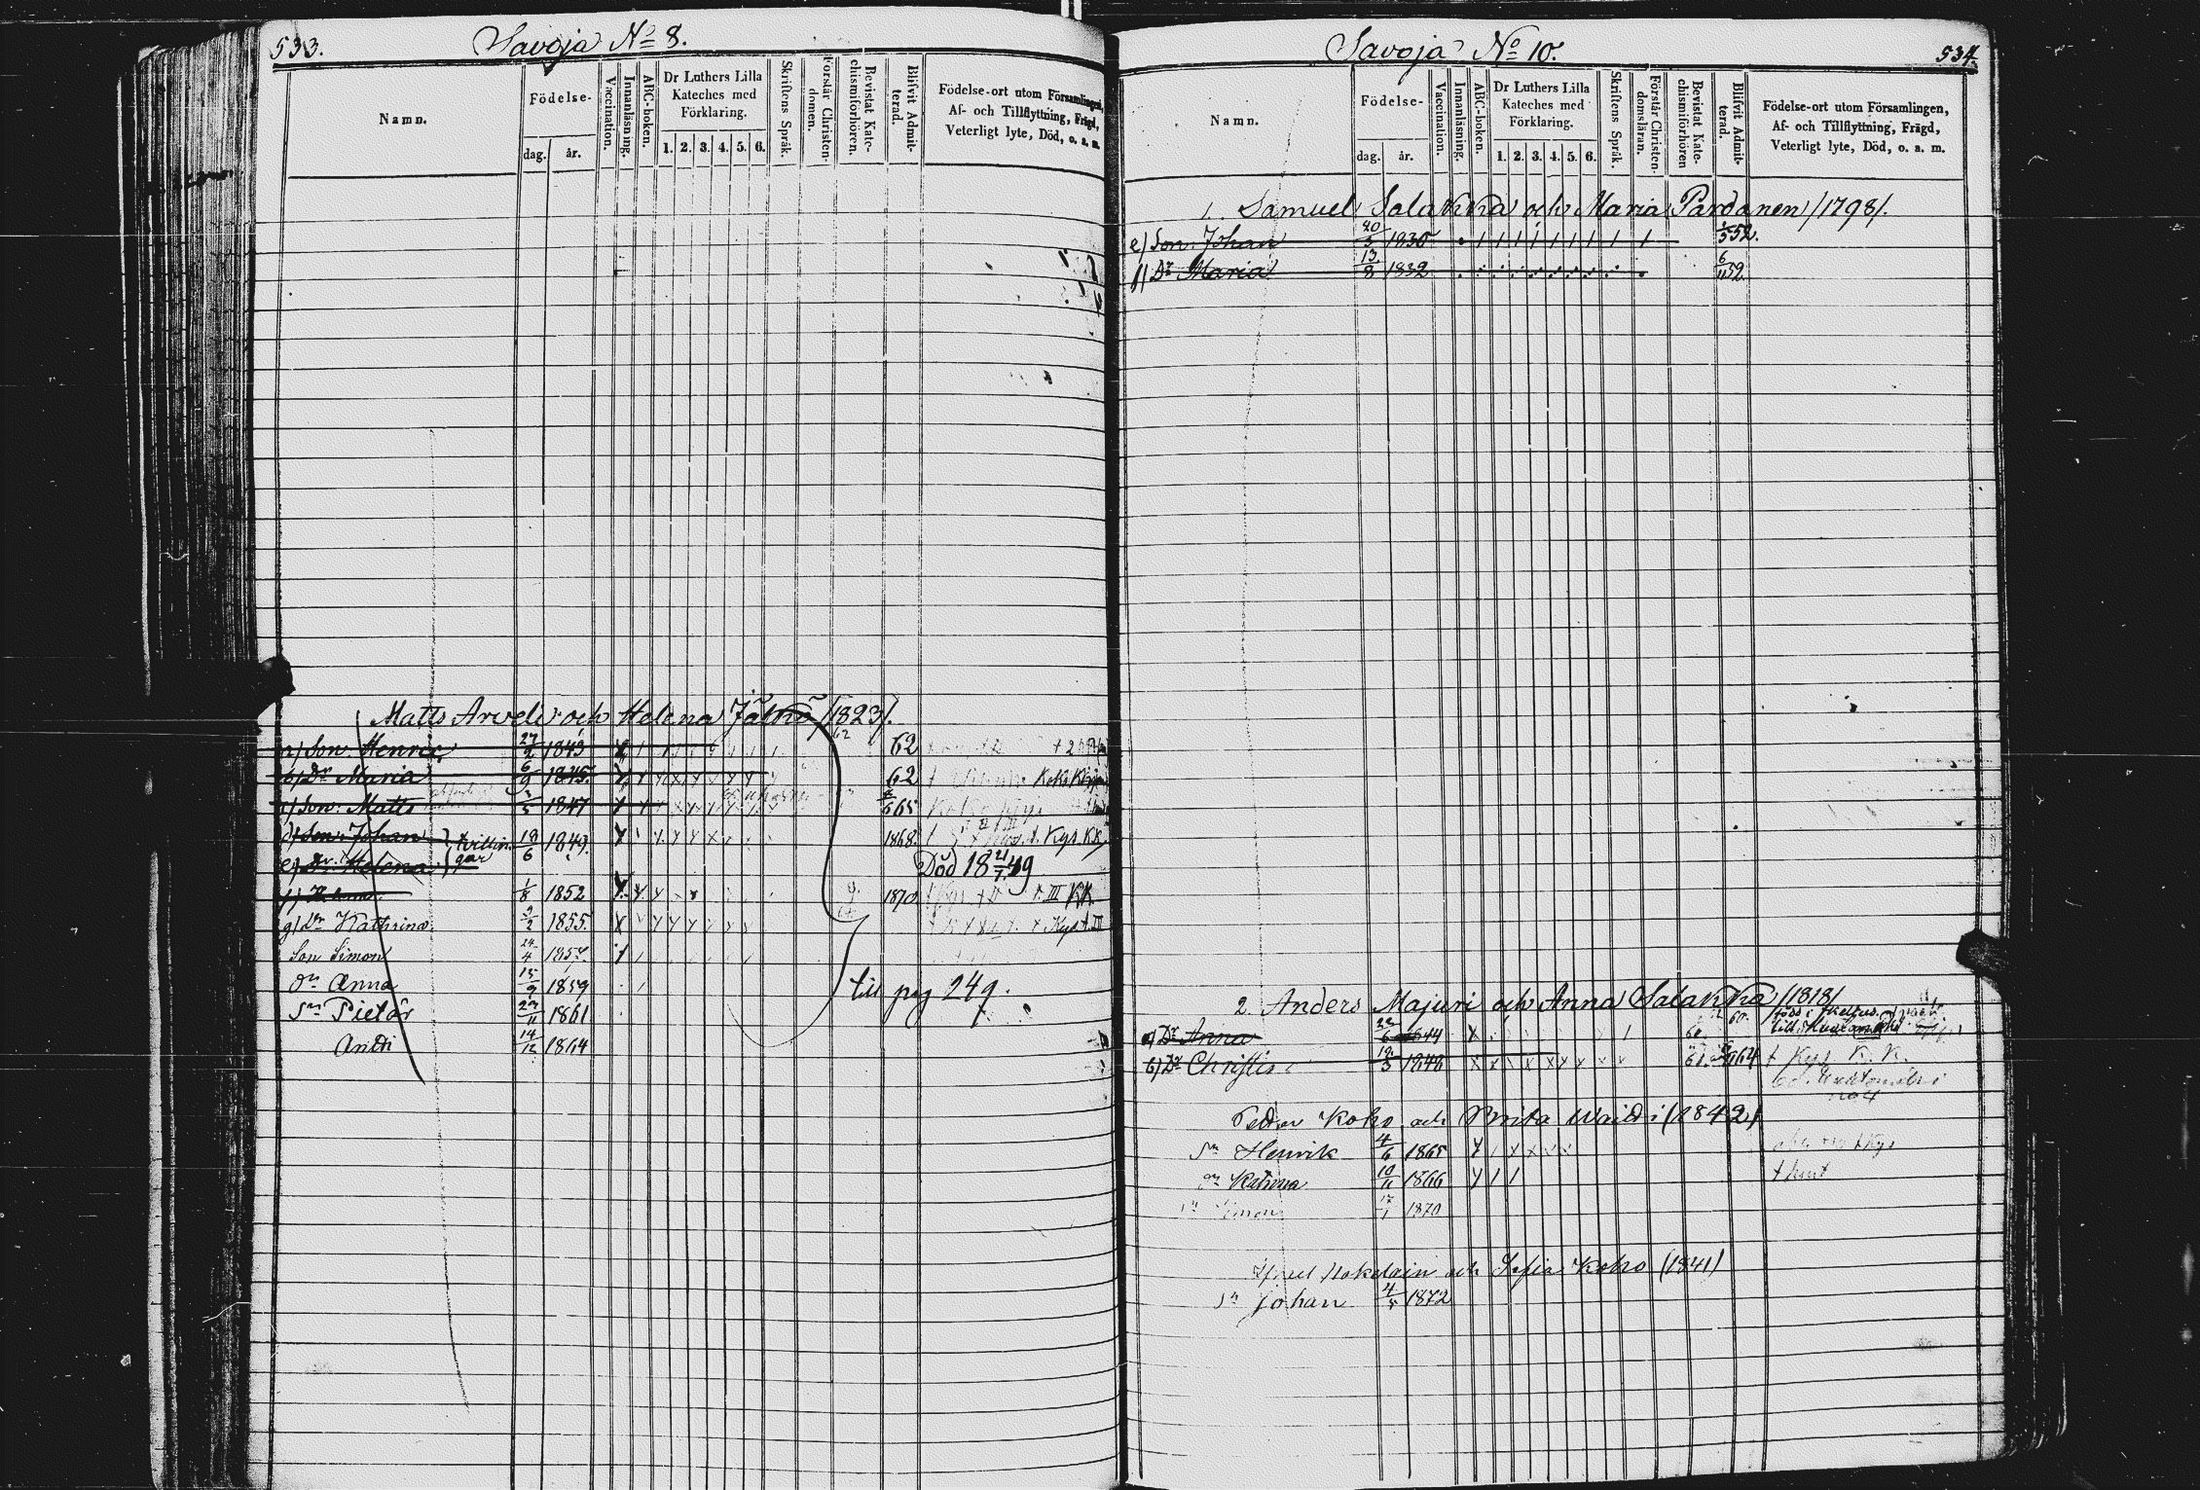 533.
Savoja No 8.
Namn.
Födelse-
dag.
år.
Vaccination.
Innanläsning.
ABC-boken.
Dr Luthers Lilla
Kateches med
Förklaring.
1. 2. 3. 4. 5. 6.
Skriftens Språk.
Förstår Christen-
domen.
Bevistat Kate-
chismiförhören.
Blifvit Admit-
terad.
Födelse-ort utom Församlingen,
Af- och Tillflyttning, Frägd,
Veterligt lyte, Död, o. s. m.
Matts Arvela och Helena /1823/.
a) Son: Henric 27/2 1843 62
b) Dr Maria 6/9 1845. 62
c) Son: Matts 3/5 1847 65
d) Son: Johan tvillin- 18/6 1849. 1868.
e) Dr. Helena gar Död 18 21/7 49
f) 1/8 1852 1870
g) Dr Kathrina 9/2 1855.
Son Simon 24/4 1857.
Dr Anna 15/9 1859
Sn Pietär 23/11 1861
till pag 249.
Antti 14/12 1864
Savoja No 10.
534.
Namn.
Födelse-
dag.
år.
Vaccination.
Innanläsning.
ABC-boken.
Dr Luthers Lilla
Kateches med
Förklaring.
1. 2. 3. 4. 5. 6.
Skriftens Språk.
Förstår Christen-
domsläran.
Bevistat Kate-
chismiförhören
Blifvit Admit-
terad.
Födelse-ort utom Församlingen,
Af- och Tillflyttning, Frägd,
Veterligt lyte, Död, o. s. m.
1. Samuel Salakka och Maria Pardanen /1798/.
e) Son: Johan 20/5 1830 52.
f) Dr Maria 13/8 1832 6/11 52
2. Anders Majuri och Anna Salakka /1818/
a) Dr Anna 22/6 1844
b) Dr Christi 19/3 1846 61. 64 Kys. K. K.
Petter Koho och Brita Waidi (1842)
Sn Henrik 4/6 1865
Dr Katrina 10/11 1866
Sn Simon 17/1 1870
och Sofia Koho (1841)
Sn Johan 4/5 1872